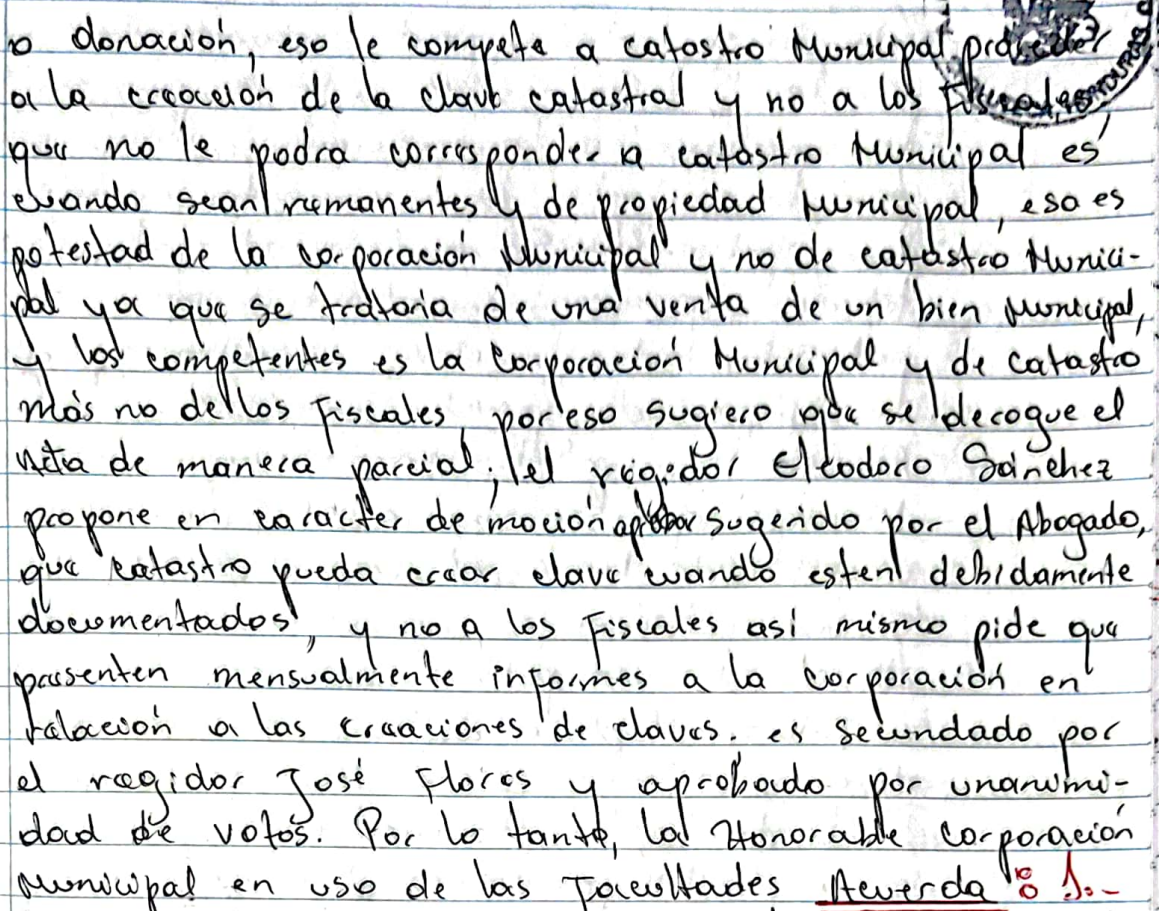 o donación, eso le compete a catastro Municipal proceder
a la creación de la clave catastral y no a los Fiscales,
que no le podra corresponder a catástro Municipal es
cuando sean remanentes y de propiedad Municipal, eso es
potestad de la corporación Municipal y no de catástro Munici-
pal ya que se trataria de una venta de un bien Municipal,
y los competentes es la Corporación Municipal y de Catastro
más no de los Fiscales, por eso sugiero que se derogue el
Acta de manera parcial; el regidor Eleodoro Sánchez
propone en carácter de moción aprobar sugerido por el Abogado,
que catastro pueda crear clave cuando esten debidamente
documentados, y no a los Fiscales así mismo pide que
presenten mensualmente informes a la corporación en
relación a las creaciones de claves. es secundado por
el regidor José Flores y aprobado por unanimi-
dad de votos. Por lo tanto, la Honorable Corporación
Municipal en uso de las Facultades Acuerda: 1.-
HONDURAS